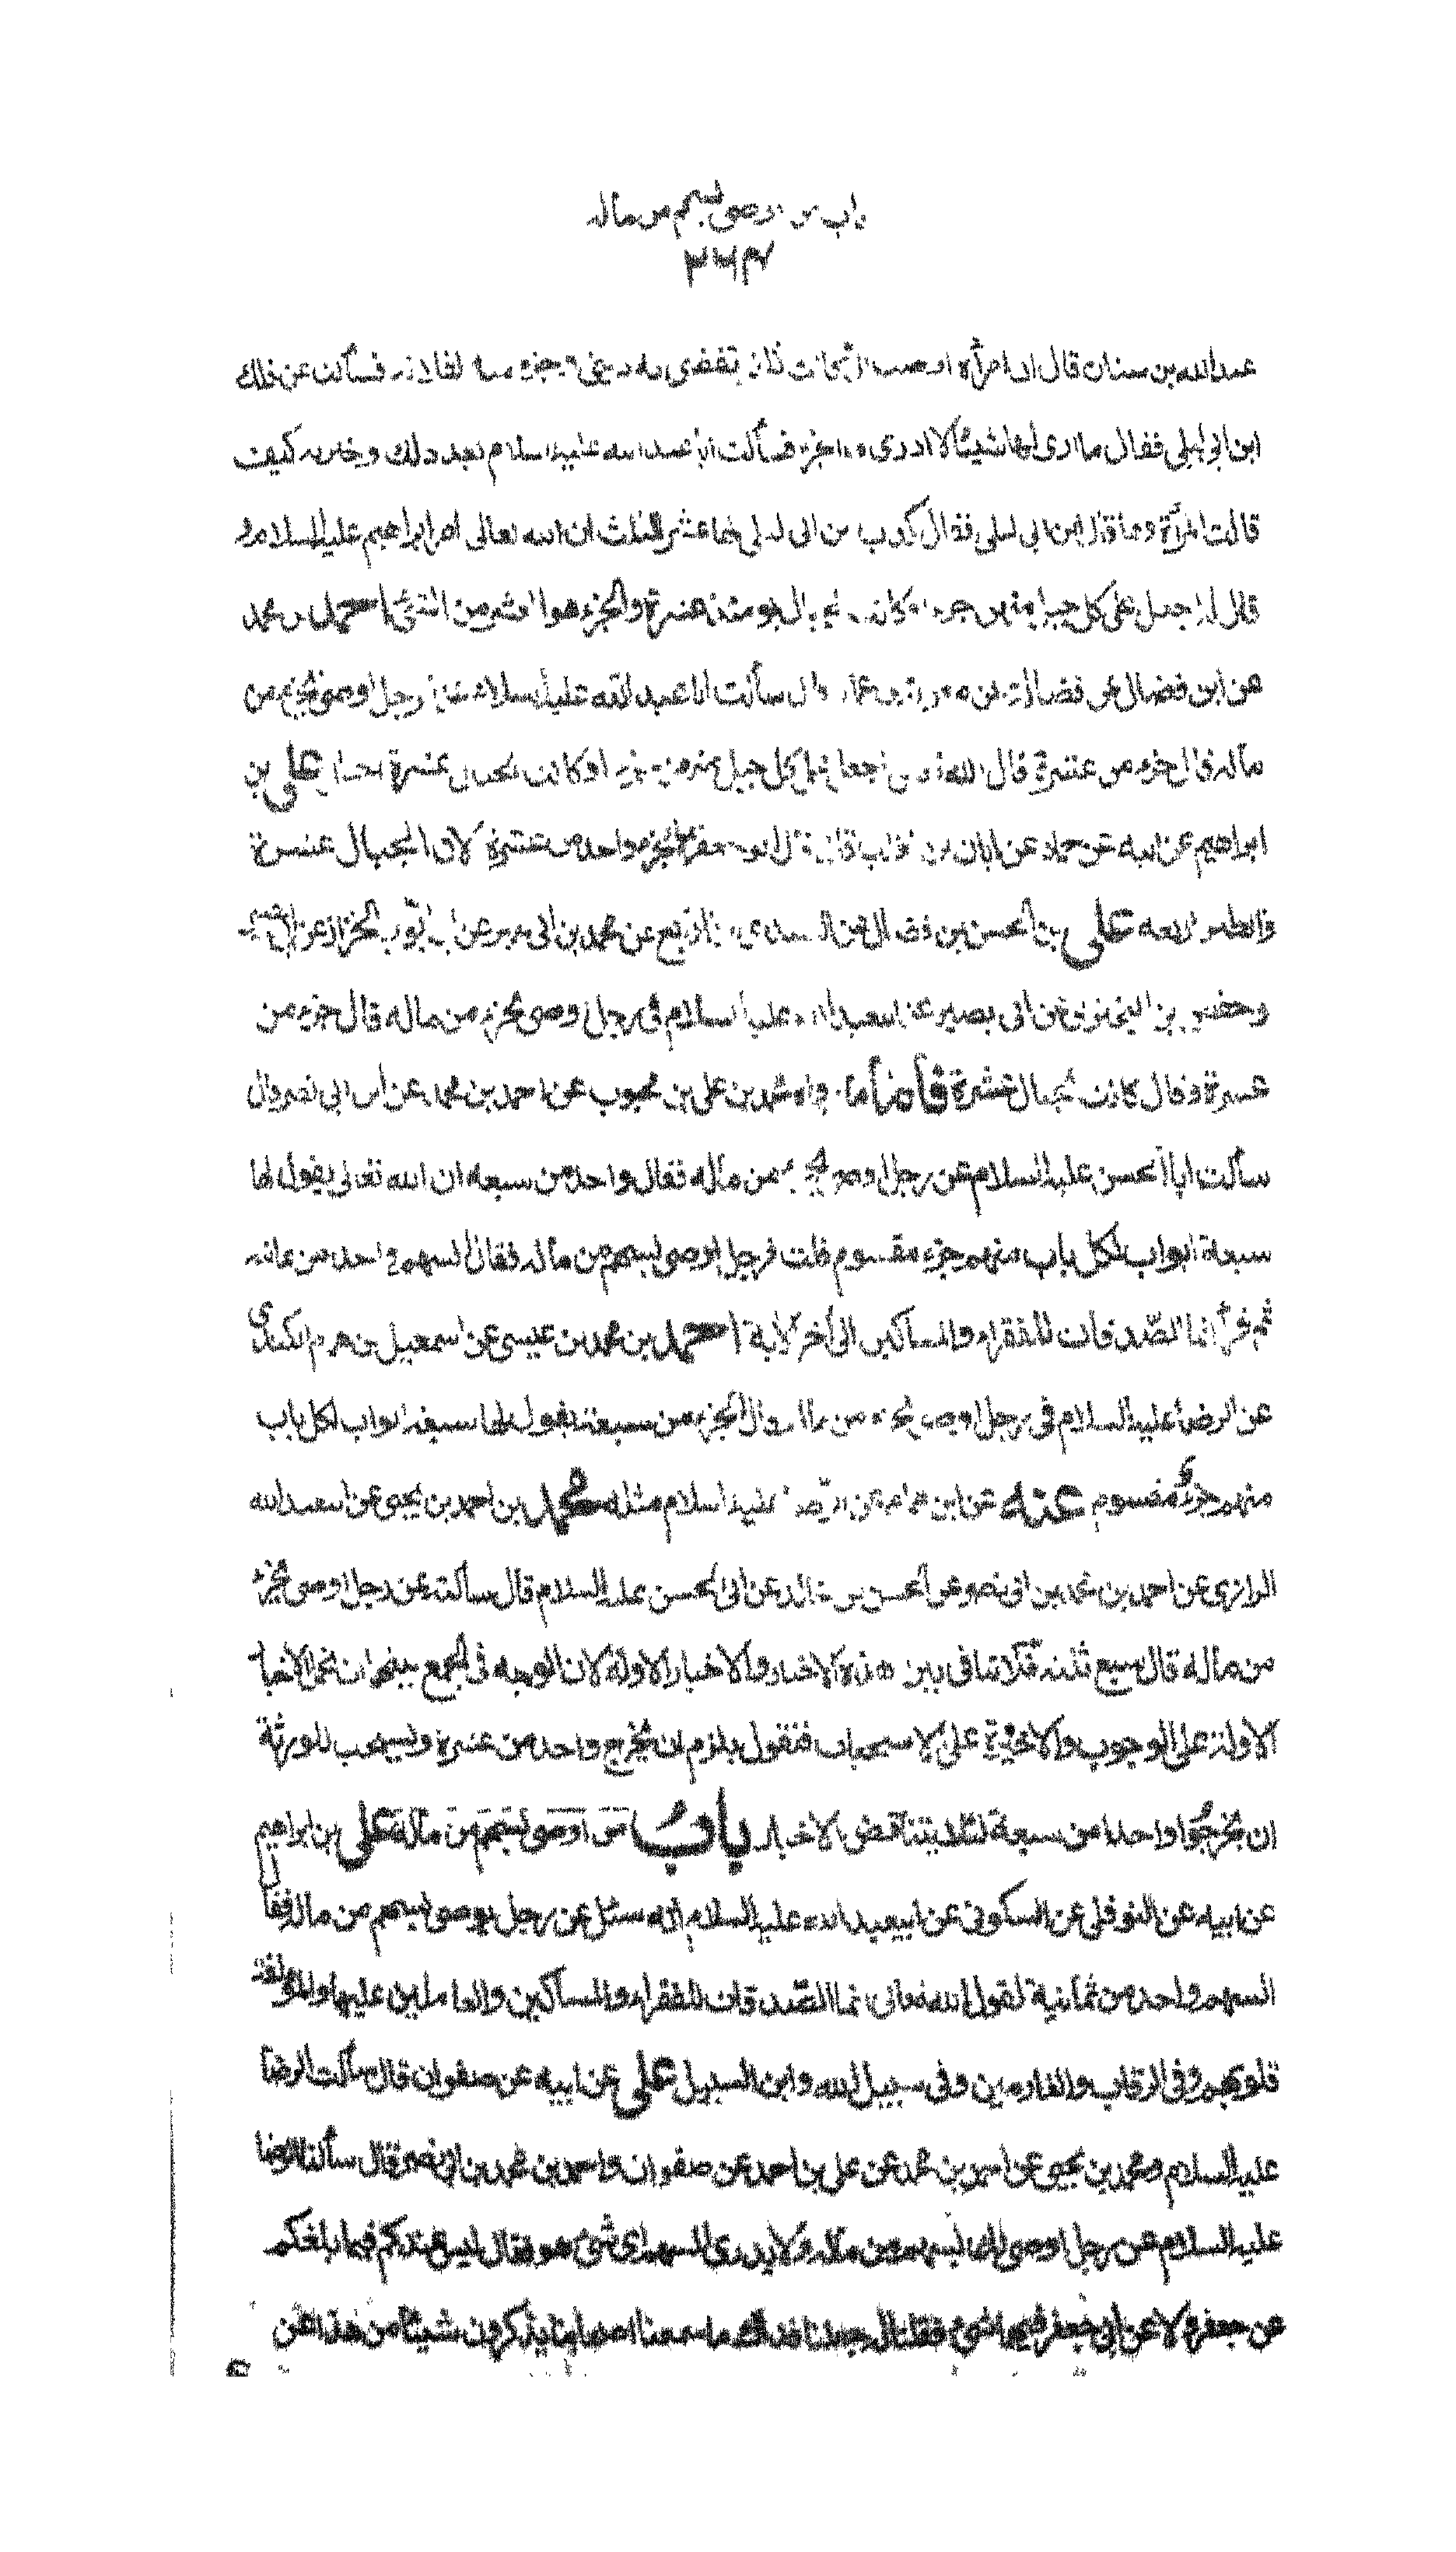 باب من اوصى بسهم من ماله
عبدالله بن سنان قال ان امرأة اوصت الى قالت ثلثى تقضى به دينى وجزء منه لفلانة فسألت عن ذلك
ابن ابى ليلى فقال ما ارى لها شيئا لا ادرى ما الجزء فسألت ابا عبد الله عليه السلام بعد ذلك وخبرته كيف
قالت المرأة وما قال ابن ابى ليلى فقال كذب ابن ابى ليلى لها عشر الثلث ان الله تعالى امر ابراهيم عليه السلام و
قال له اجعل على كل جبل منهن جزءا وكانت الجبال يومئذ عشرة والجزء هو العشر من الشئ احمد بن محمد
عن ابن فضال عن ثعلبة بن عن معوية بن عمار قال سألت ابا عبد الله عليه السلام عن رجل اوصى بجزء من
ماله قال جزء من عشرة قال الله ثم اجعل على كل جبل منهن جزءا وكانت الجبال عشرة على بن
ابراهيم عن ابيه عن حماد عن ابان بن تغلب قال قال ابو جعفر الجزء واحد من عشرة لان الجبال عشرة
والطير اربعة على بن الحسن بن فضال عن السندى بن الربيع عن محمد بن ابى عمير عن ابى ايوب الخزاز عن ابى بصير
وحفص بن البخترى عن ابى بصير عن ابيعبد الله عليه السلام فى رجل اوصى بجزء من ماله قال جزء من
عشرة وقال كانت الجبال عشرة فأما ما رواه محمد بن على بن محبوب عن احمد بن محمد عن ابن ابى نصر قال
سألت ابا الحسن عليه السلام عن رجل اوصى بجزء من ماله فقال واحد من سبعة ان الله تعالى يقول لها
سبعة ابواب لكل باب منهم جزء مقسوم قلت فرجل اوصى بسهم من ماله فقال السهم واحد من ثمانية
ثم قرأ انما الصدقات للفقراء والمساكين الى أخر الاية احمد بن محمد بن عيسى عن اسمعيل بن همام الكندى
عن الرضا عليه السلام فى رجل اوصى بجزء من ماله قال الجزء من سبعة يقول لها سبعة ابواب لكل باب
منهم جزء مقسوم عنه عن ابن همام عن الرضا عليه السلام مثله محمد بن احمد بن يحيى عن ابيعبد الله
الرازى عن احمد بن محمد بن ابى نصر عن الحسن بن خالد عن ابى الحسن عليه السلام قال سألته عن رجل اوصى بجزء
من ماله قال سبع ثلثه فلا تنافى بين هذه الاخبار والاخبار الاولة لان الوجه فى الجمع بينهما ان نحمل الاخبا
الاولة على الوجوب والاخيرة على الاستحباب فنقول يلزم ان يخرج واحد من عشرة ويستحب للورثة
ان يخرجوا واحدا من سبعة لئلا يتناقض الاخبار باب من اوصى بسهم من ماله على بن ابراهيم
عن ابيه عن النوفلى عن السكونى عن ابيعبد الله عليه السلام انه سئل عن رجل يوصى بسهم من ماله فقال
السهم واحد من ثمانية لقول الله تعالى انما الصدقات للفقراء والمساكين والعاملين عليها والمؤلفة
قلوبهم وفى الرقاب والغارمين وفى سبيل الله وابن السبيل على عن ابيه عن صفوان قال سألت الرضا
عليه السلام ومحمد بن يحيى عن احمد بن محمد عن على بن احمد عن صفوان واحمد بن محمد بن ابى نصر قال سألنا الرضا
عليه السلام عن رجل اوصى لك بسهم من ماله ولا يدرى السهم اى شئ هو فقال ليس عندكم فيما بلغكم
عن جعفر ولا عن ابى جعفر فيها شئ فقلنا له جعلنا فداك ما سمعنا اصحابنا يذكرون شيئا من هذا عن